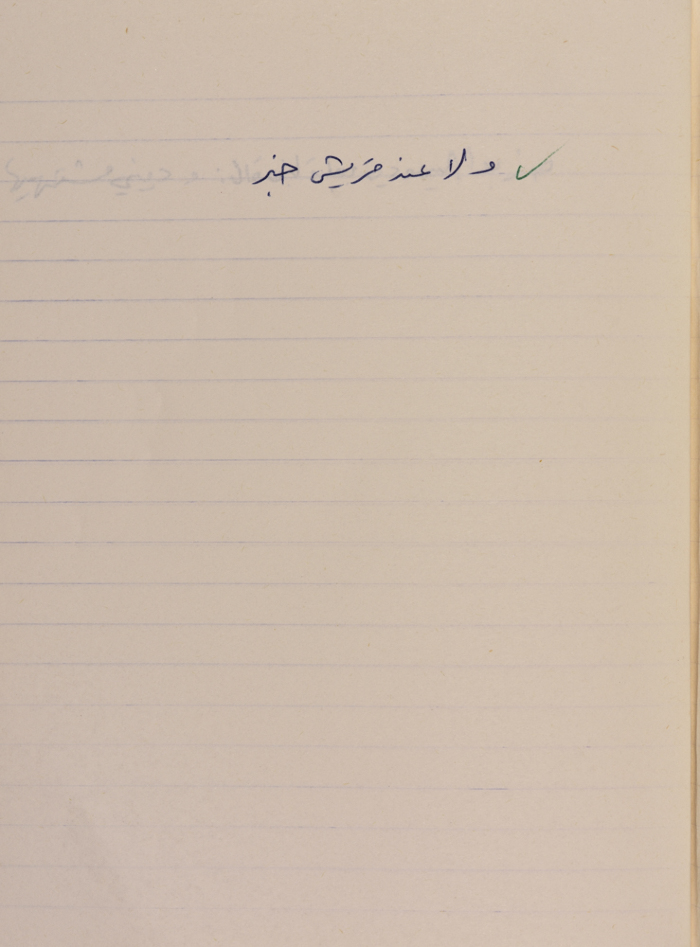 ولا عند قريش خبر